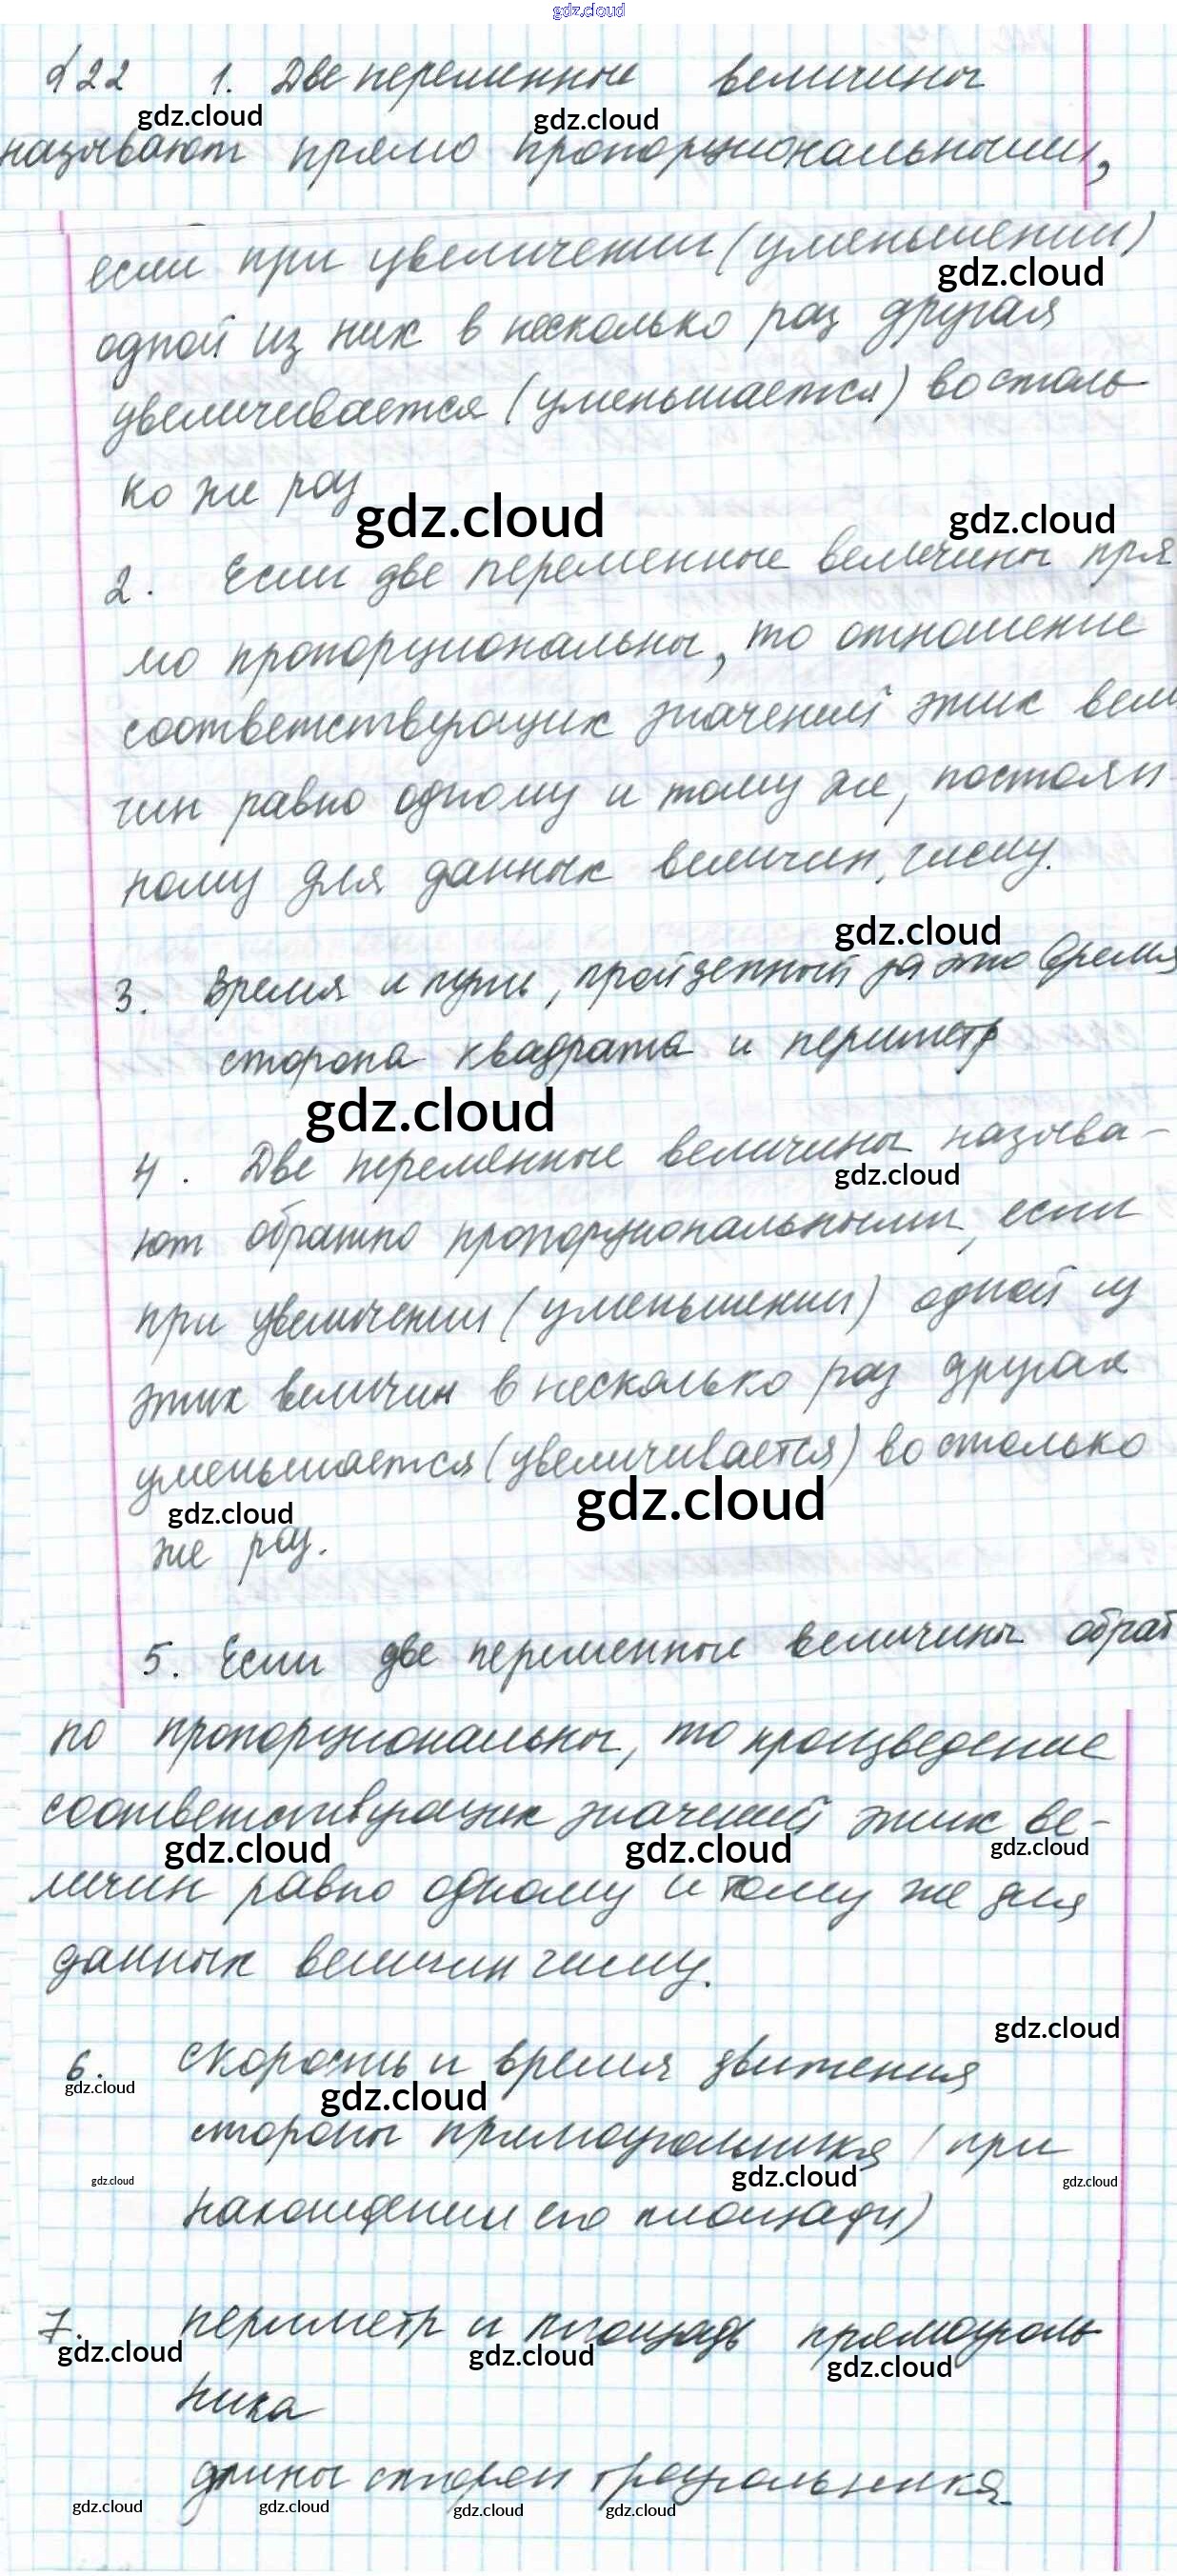 gdz.cloud
§22 1. Две переменные величины
gdz.cloud gdz.cloud
называют прямо пропорциональными,
если при увеличении (уменьшении)
gdz.cloud
одной из них в несколько раз другая
увеличивается (уменьшается) во столь
ко же раз
gdz.cloud gdz.cloud
2. Если две переменные величины пря
мо пропорциональны, то отношение
соответствующих значений этих вели
чин равно одному и тому же, постоян
ному для данных величин, числу.
gdz.cloud
3. Время и путь, пройденный за это время
сторона квадрата и периметр
gdz.cloud
4. Две переменные величины называ-
gdz.cloud
ют обратно пропорциональными, если
при увеличении (уменьшении) одной из
этих величин в несколько раз другая
уменьшается (увеличивается) во столько
gdz.cloud gdz.cloud
же раз.
5. Если две переменные величины обрат
но пропорциональны, то произведение
соответствующих значений этих ве-
gdz.cloud gdz.cloud gdz.cloud
личин равно одному и тому же для
данных величин числу.
gdz.cloud
6. скорость и время движения
gdz.cloud gdz.cloud
стороны прямоугольника (при
gdz.cloud gdz.cloud gdz.cloud
нахождении его площади)
7. периметр и площадь прямоуголь
gdz.cloud gdz.cloud gdz.cloud
ника
длины сторон треугольника.
gdz.cloud gdz.cloud gdz.cloud gdz.cloud